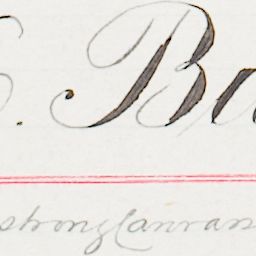 . Ba
strong Canvas